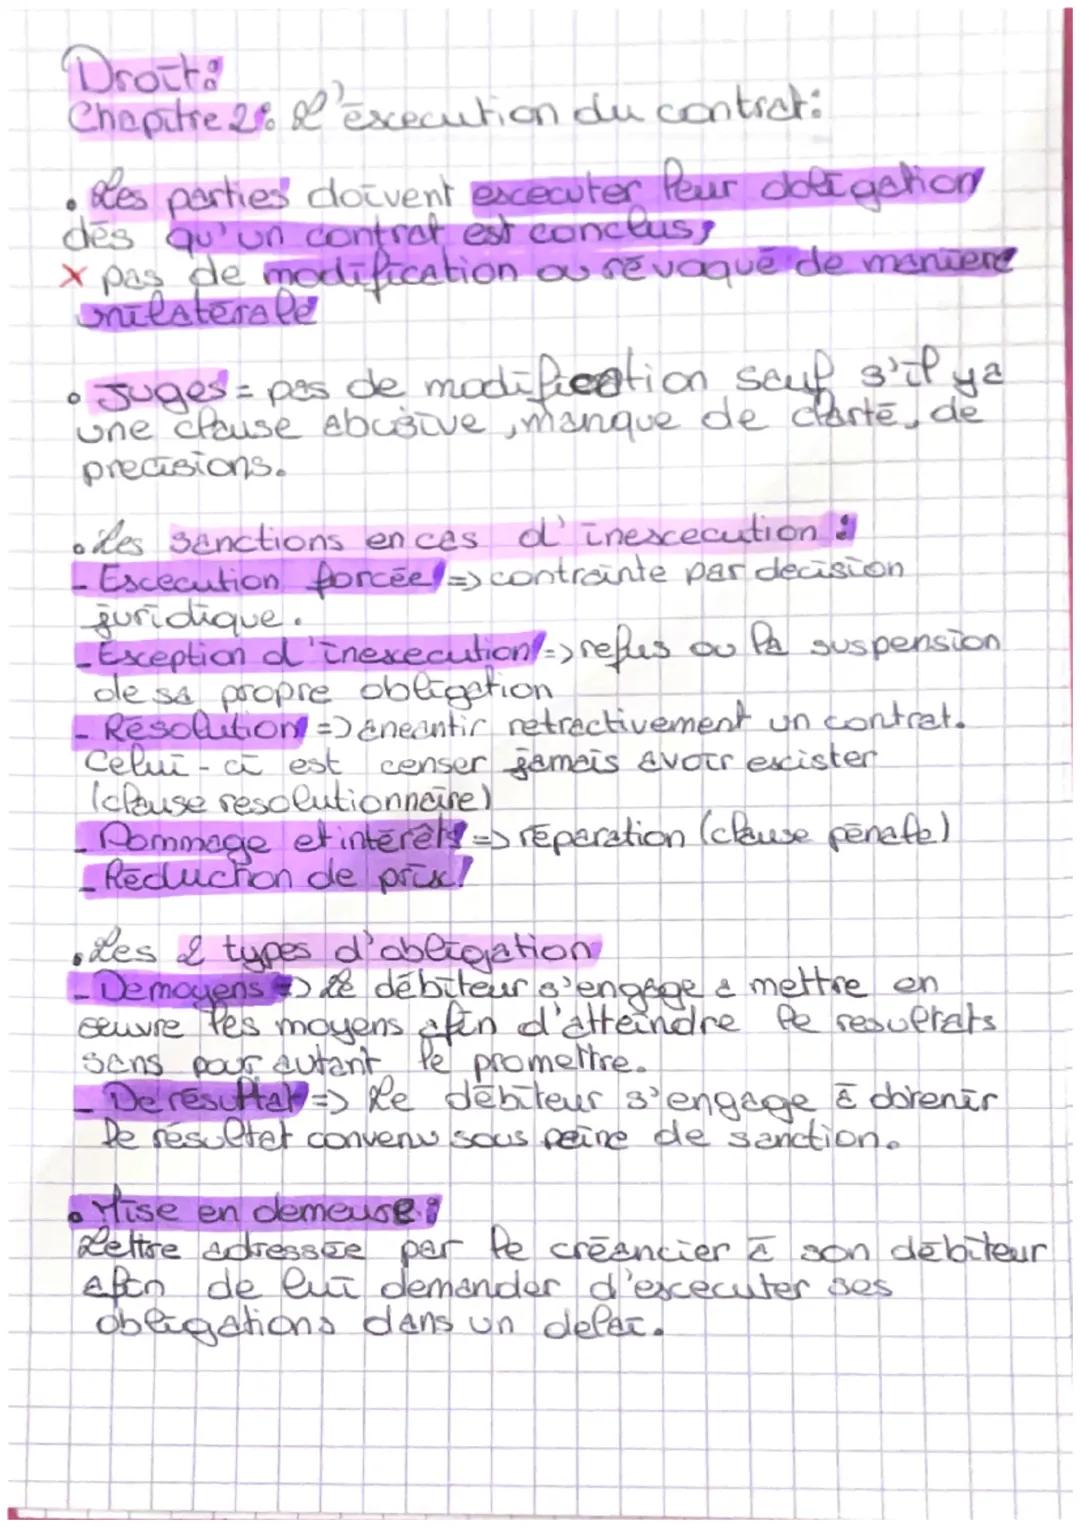 Droit:
Chapitre 2: L'éxecution du contrat:
• Les parties doivent executer leur obligation
dés qu'un contrat est conclus,
X pas de modification ou révoqué de manière
unilatérale
• Juges = pas de modification sauf s'il y a
une clause abusive, manque de clarté, de
precisions.
• Les sanctions en cas d'inexecution :
- Execution forcée => contrainte par decision
juridique.
- Exception d'inexecution => refus ou la suspension
de sa propre obligation
- Résolution => aneantir retractivement un contrat.
Celui-ci est censer jamais avoir exister
(clause resolutionnaire)
- Dommage et intérêts => réparation (clause pénale)
- Réduction de prix!
• Les 2 types d'obligation
- De moyens => Le débiteur s'engage a mettre en
œuvre les moyens afin d'atteindre le resultats
sans pour autant le promettre.
- De résultat => Le débiteur s'engage à obtenir
le résultat convenu sous peine de sanction.
• Mise en demeure :
Lettre adressée par le créancier à son débiteur
afin de lui demander d'executer ses
obligations dans un delai.